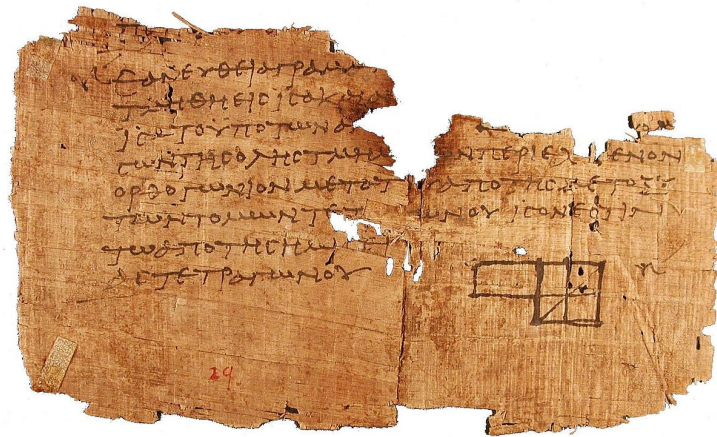 ΕΑΝ ΕΥΘΕΙΑ ΓΡΑΜΜ
ΤΜΗΘΗ ΕΙϹ ΙϹΑ Κ
ΙϹΑ ΤΟ ΥΠΟ ΤΩΝ Α
ϹΩΝ ΤΗϹ ΟΛΗϹ ΤΜΗ Ν ΠΕΡΙΕΧ ΜΕΝΟΝ
ΟΡΘΟΓΩΝΙΟΝ ΜΕΤΑ Τ Υ ΑΠΟ ΤΗϹ ΜΕΤΟΞΥ
ΤΩΝ ΤΟΜΩΝ ΤΕΤ ΩΝΟΥ ΙϹΟΝ ΕϹΤΙΝ
ΤΩ ΑΠΟ ΤΗϹ ΗΜΙϹ
ΑϹ ΤΕΤΡΑΓΩΝΟΥ
29